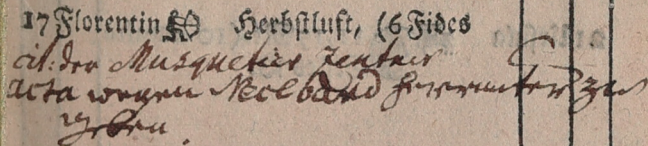 17 Florentin Herbstluft, (6 Fides
cit: der Musquetier Zentner
acta wegen herunter zu
geben.